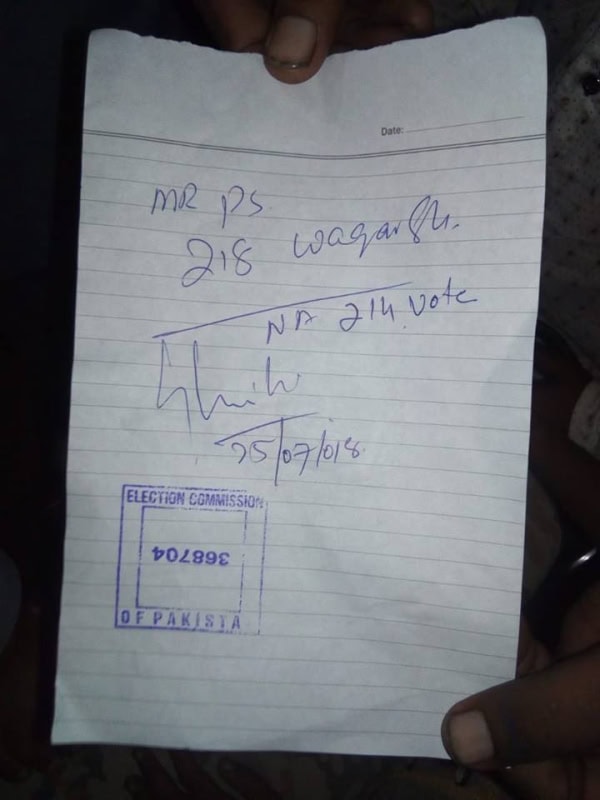 Date:
MR PS.
218 Waqar Sh.
NA 214 Vote
25/07/018
ELECTION COMMISSION
368704
OF PAKISTA